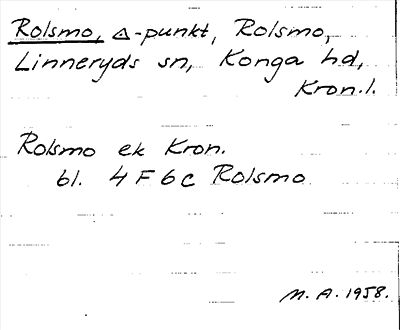 Rolsmo, △-punkt, Rolsmo,
Linneryds sn, Konga hd,
Kron.l.
Rolsmo ek Kron.
bl. 4 F 6 c Rolsmo
M. A. 1958.